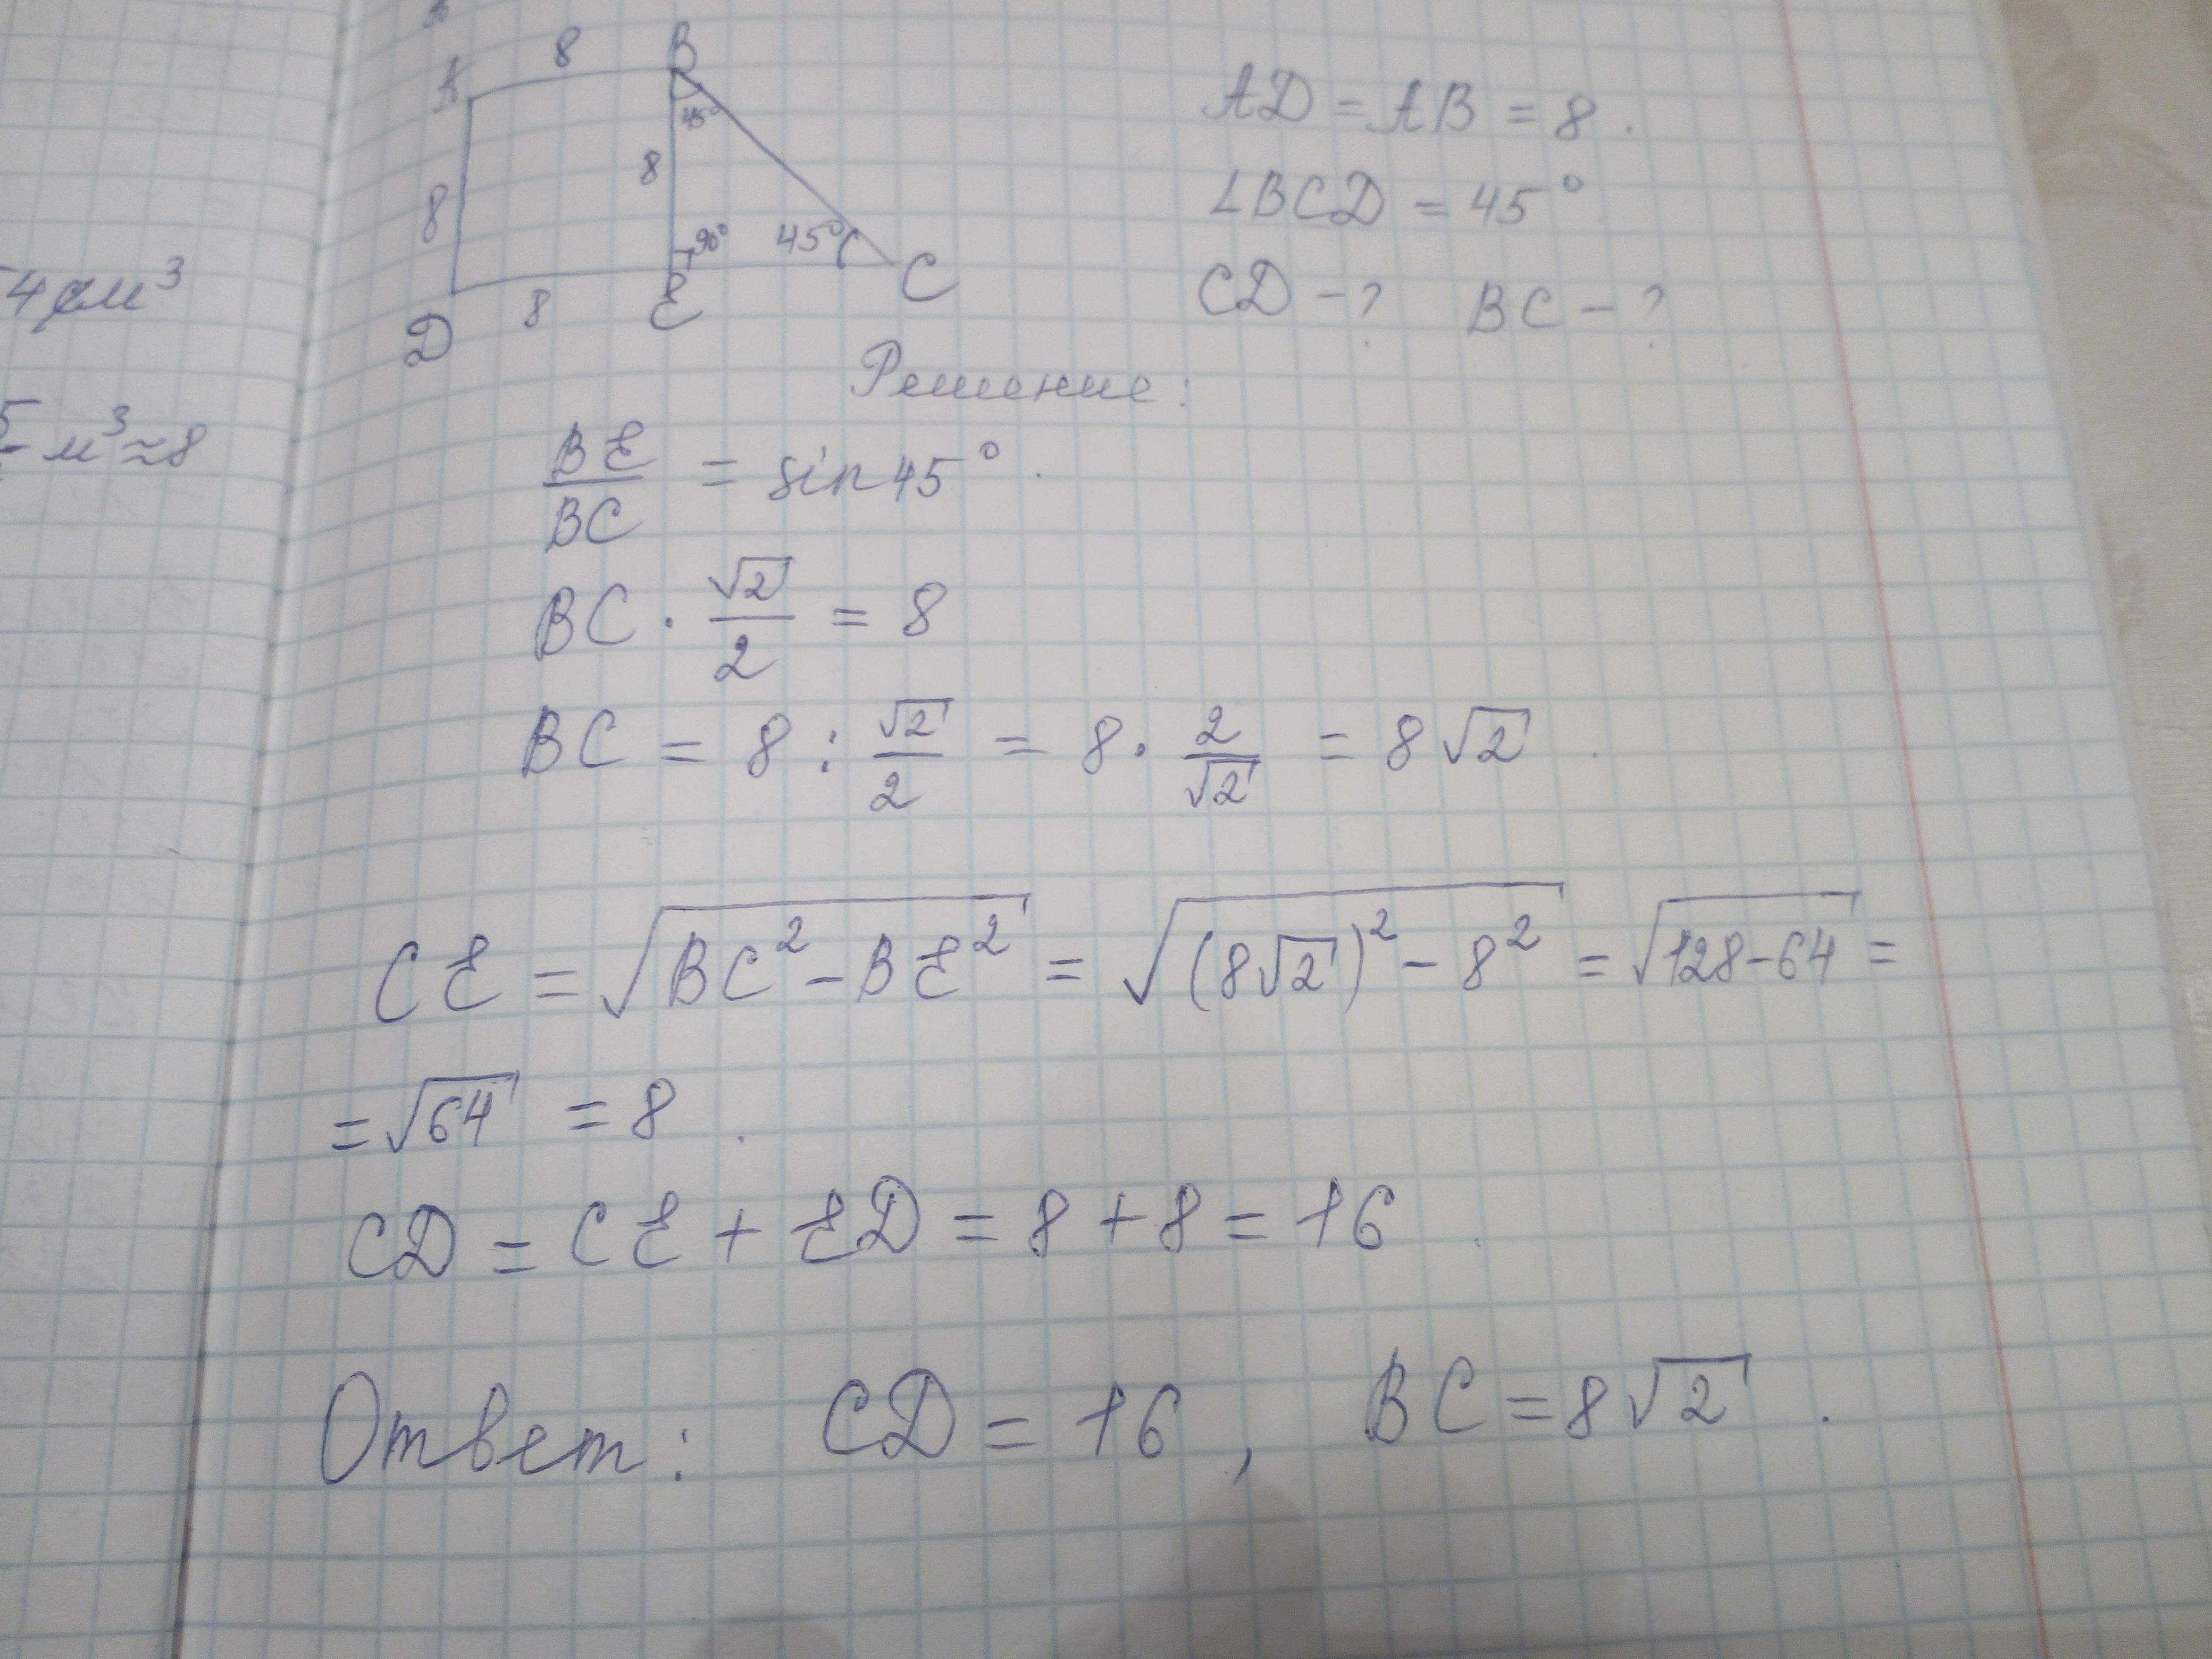 8
B
A
45°
8
8
90°
45°
C
D
8
E
AD = AB = 8.
∠BCD = 45°
CD - ? BC - ?
4 см³
м³ ≈ 8
Решение:
BE/BC = sin 45°.
BC · √2/2 = 8
BC = 8 : √2/2 = 8 · 2/√2 = 8√2.
CE = √(BC² - BE²) = √((8√2)² - 8²) = √(128-64) =
= √64 = 8.
CD = CE + ED = 8 + 8 = 16.
Ответ: CD = 16, BC = 8√2.